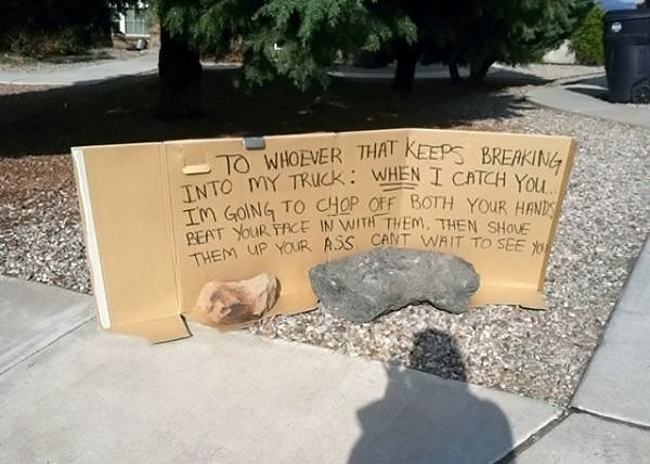 TO WHOEVER THAT KEEPS BREAKING
INTO MY TRUCK: WHEN I CATCH YOU...
I'M GOING TO CHOP OFF BOTH YOUR HANDS
BEAT YOUR FACE IN WITH THEM. THEN SHOVE
THEM UP YOUR ASS CANT WAIT TO SEE YOU